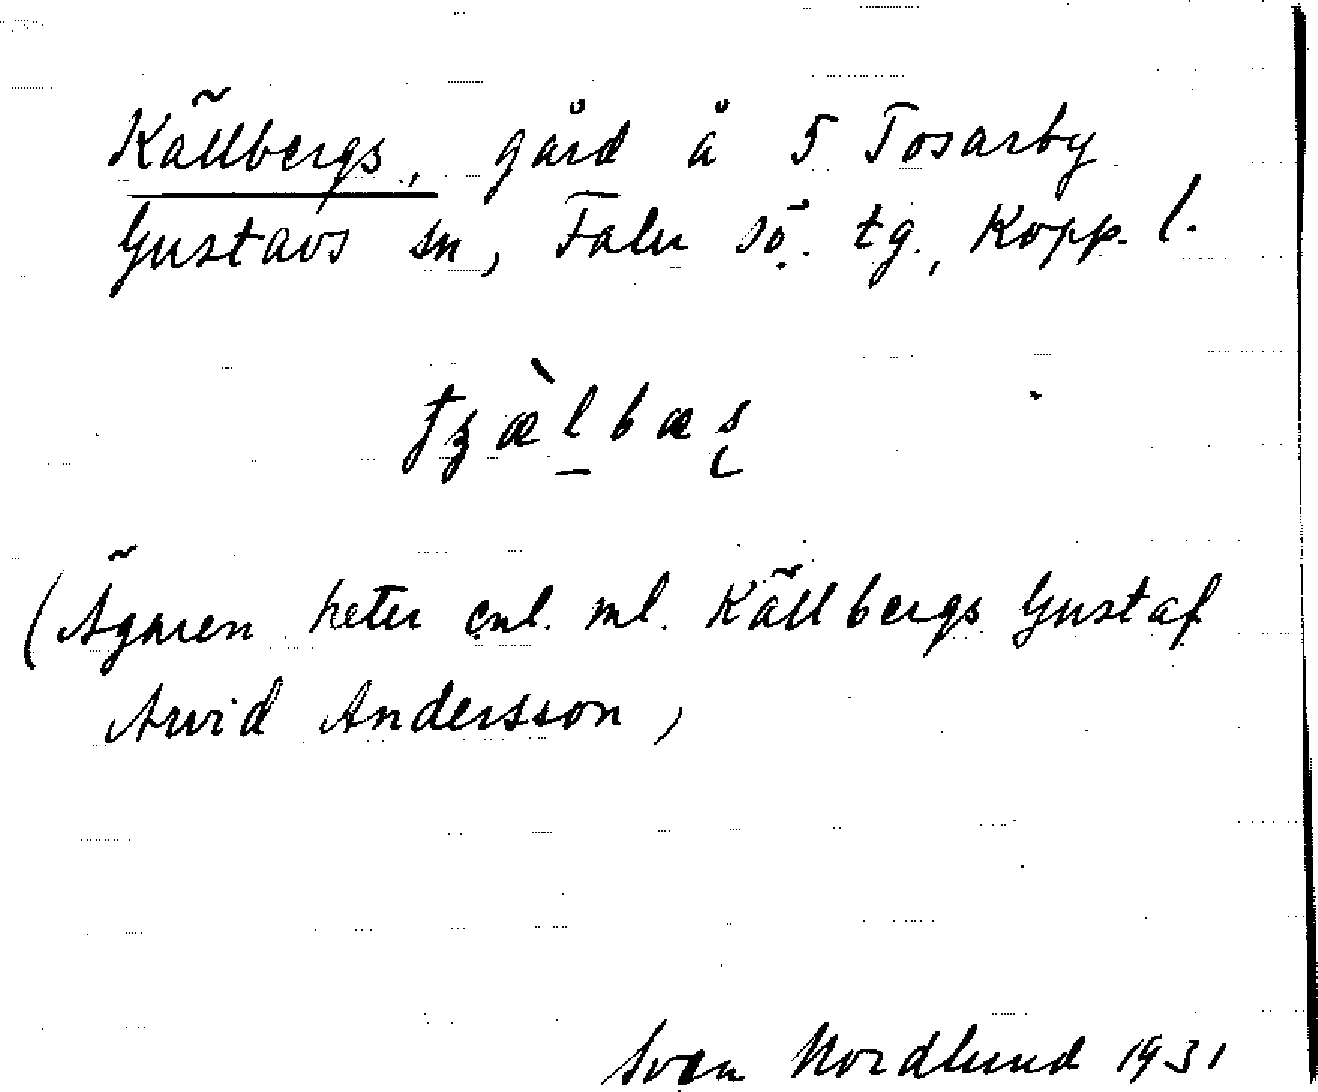 Källbergs, gård å 5 Tosarby
Gustavs sn, Falu sö. tg., Kopp. l.
(Ägaren heter enl. ml. Källbergs Gustaf
Arvid Andersson)
Sven Nordlund 1931